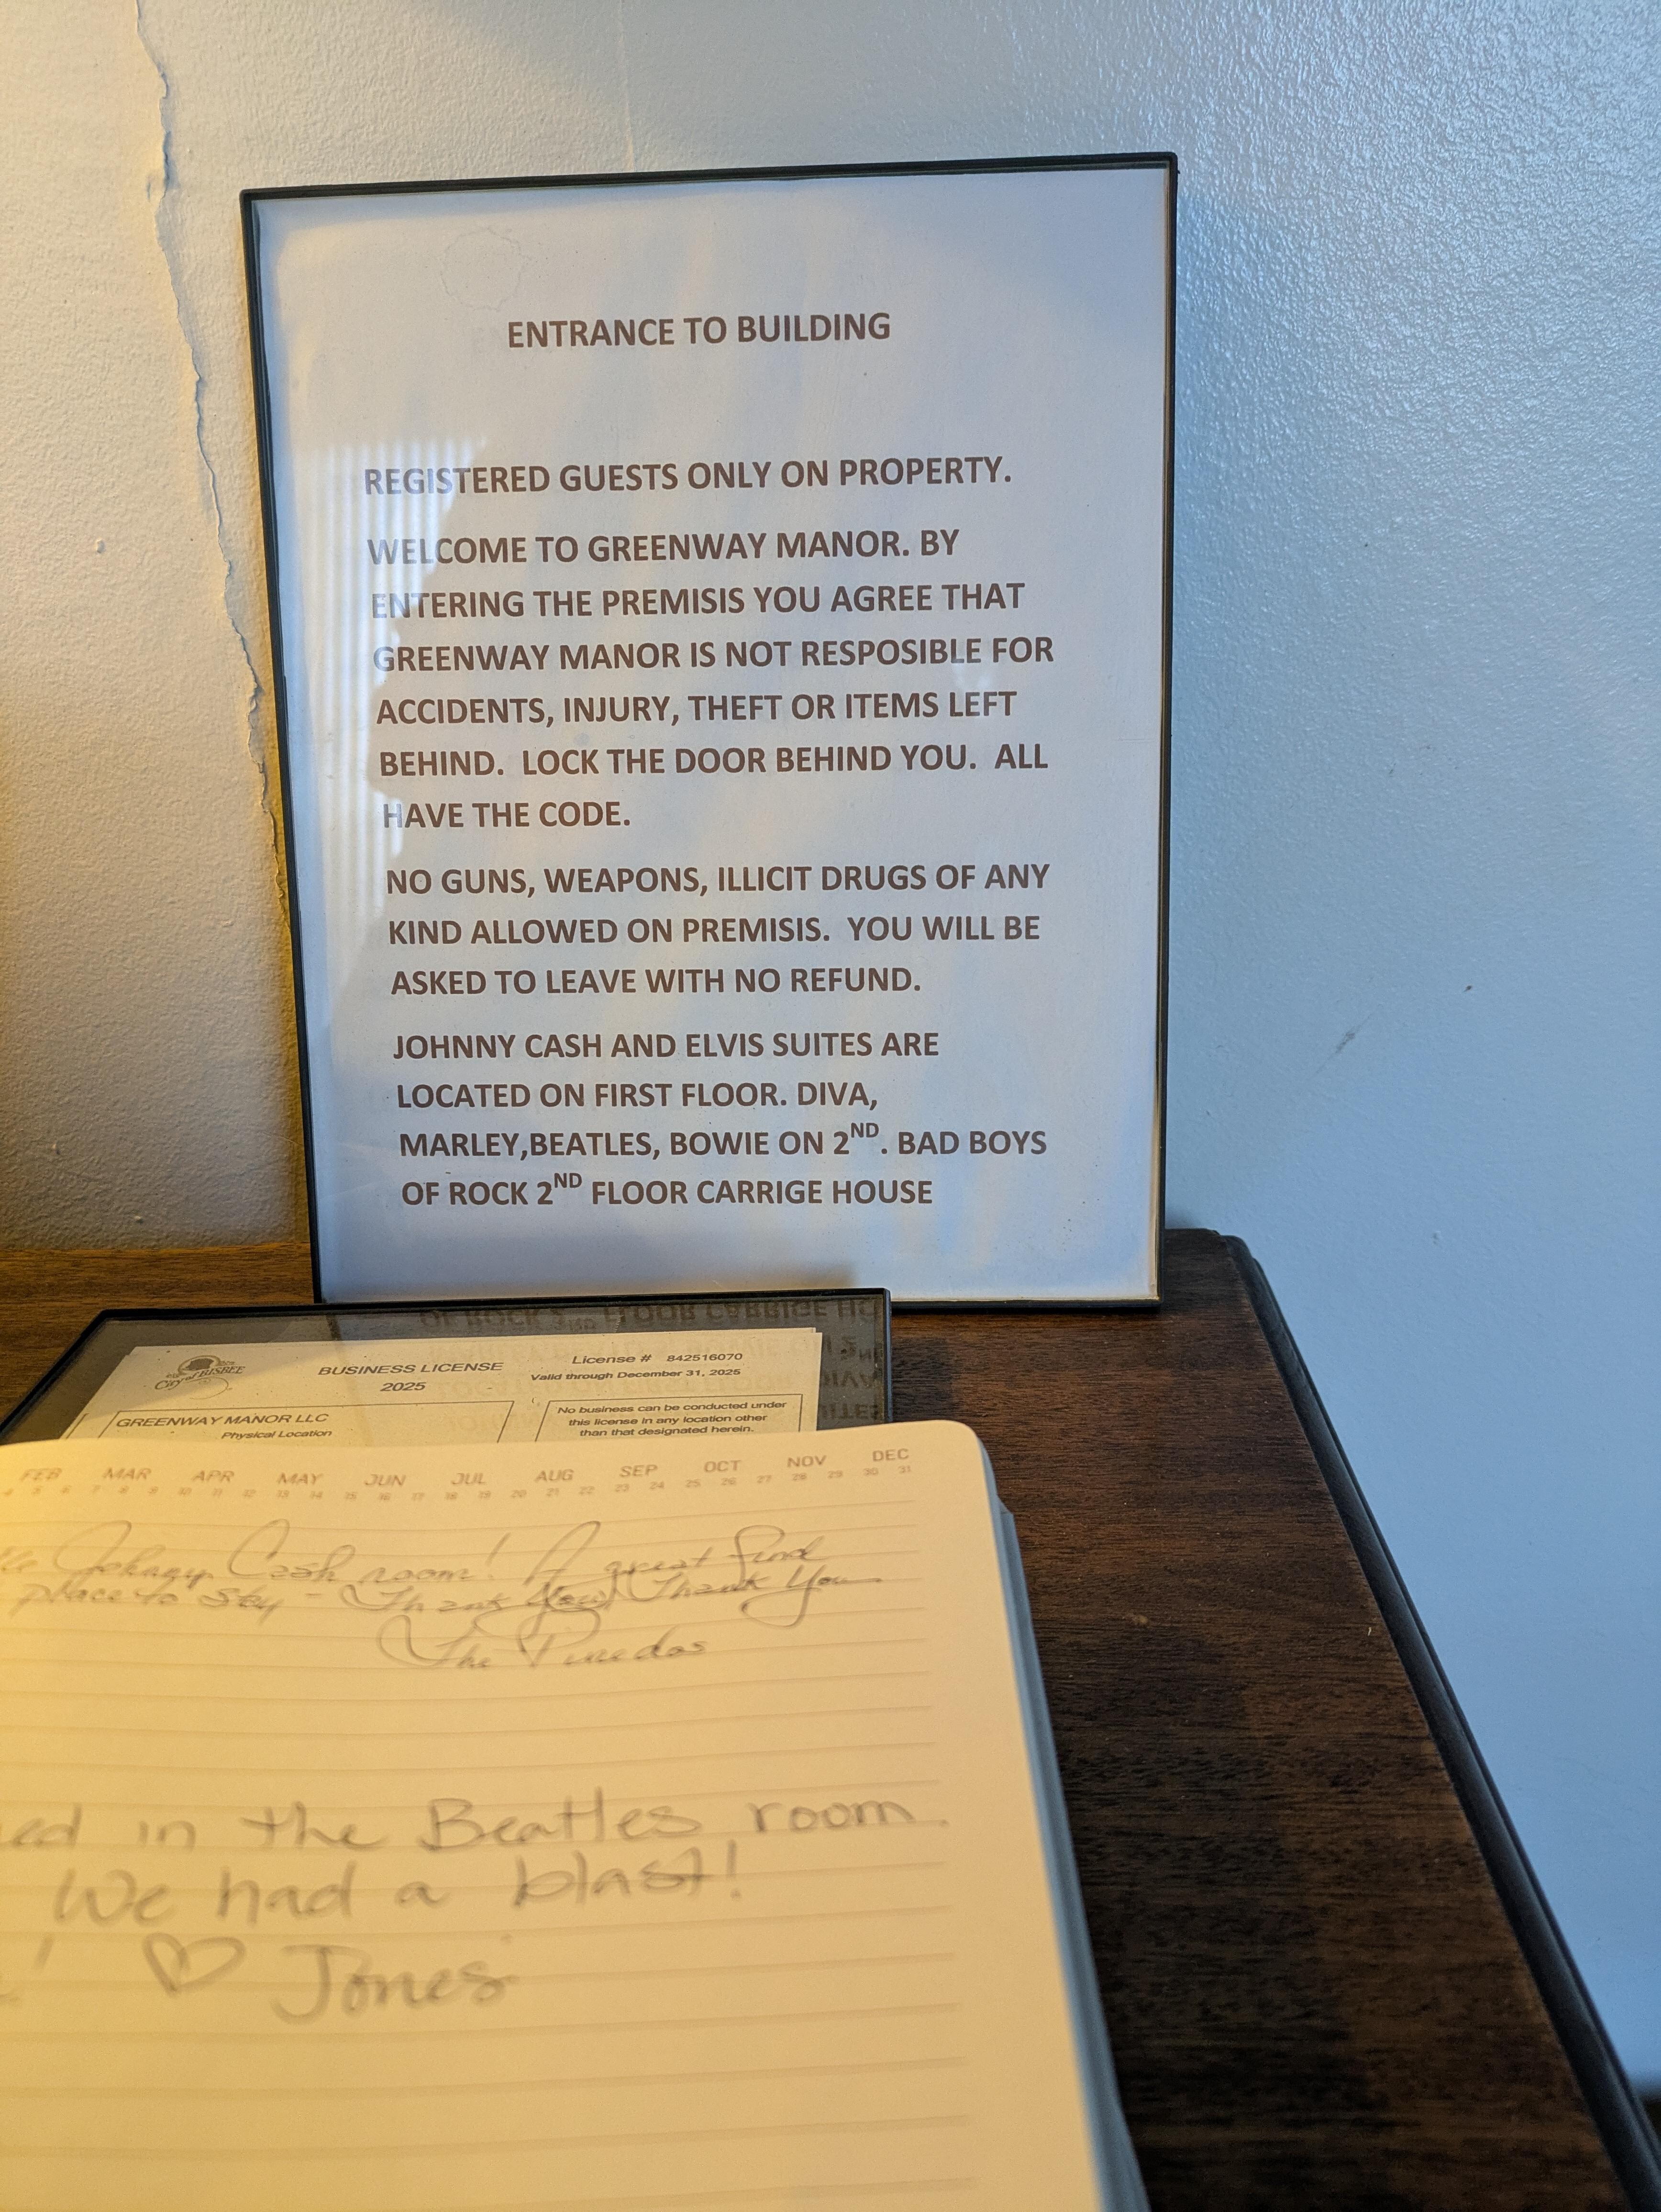 ENTRANCE TO BUILDING
REGISTERED GUESTS ONLY ON PROPERTY.
WELCOME TO GREENWAY MANOR. BY
ENTERING THE PREMISIS YOU AGREE THAT
GREENWAY MANOR IS NOT RESPOSIBLE FOR
ACCIDENTS, INJURY, THEFT OR ITEMS LEFT
BEHIND. LOCK THE DOOR BEHIND YOU. ALL
HAVE THE CODE.
NO GUNS, WEAPONS, ILLICIT DRUGS OF ANY
KIND ALLOWED ON PREMISIS. YOU WILL BE
ASKED TO LEAVE WITH NO REFUND.
JOHNNY CASH AND ELVIS SUITES ARE
LOCATED ON FIRST FLOOR. DIVA,
MARLEY,BEATLES, BOWIE ON 2ND. BAD BOYS
OF ROCK 2ND FLOOR CARRIGE HOUSE
City of BISBEE
BUSINESS LICENSE
2025
License # 842516070
Valid through December 31, 2025
GREENWAY MANOR LLC
Physical Location
No business can be conducted under
this license in any location other
than that designated herein.
FEB MAR APR MAY JUN JUL AUG SEP OCT NOV DEC
4 5 6 7 8 9 10 11 12 13 14 15 16 17 18 19 20 21 22 23 24 25 26 27 28 29 30 31
Johnny Cash room! A great find
place to stay - Thank You, Thank You
The
ed in the Beatles room.
We had a blast!
! ♡ Jones